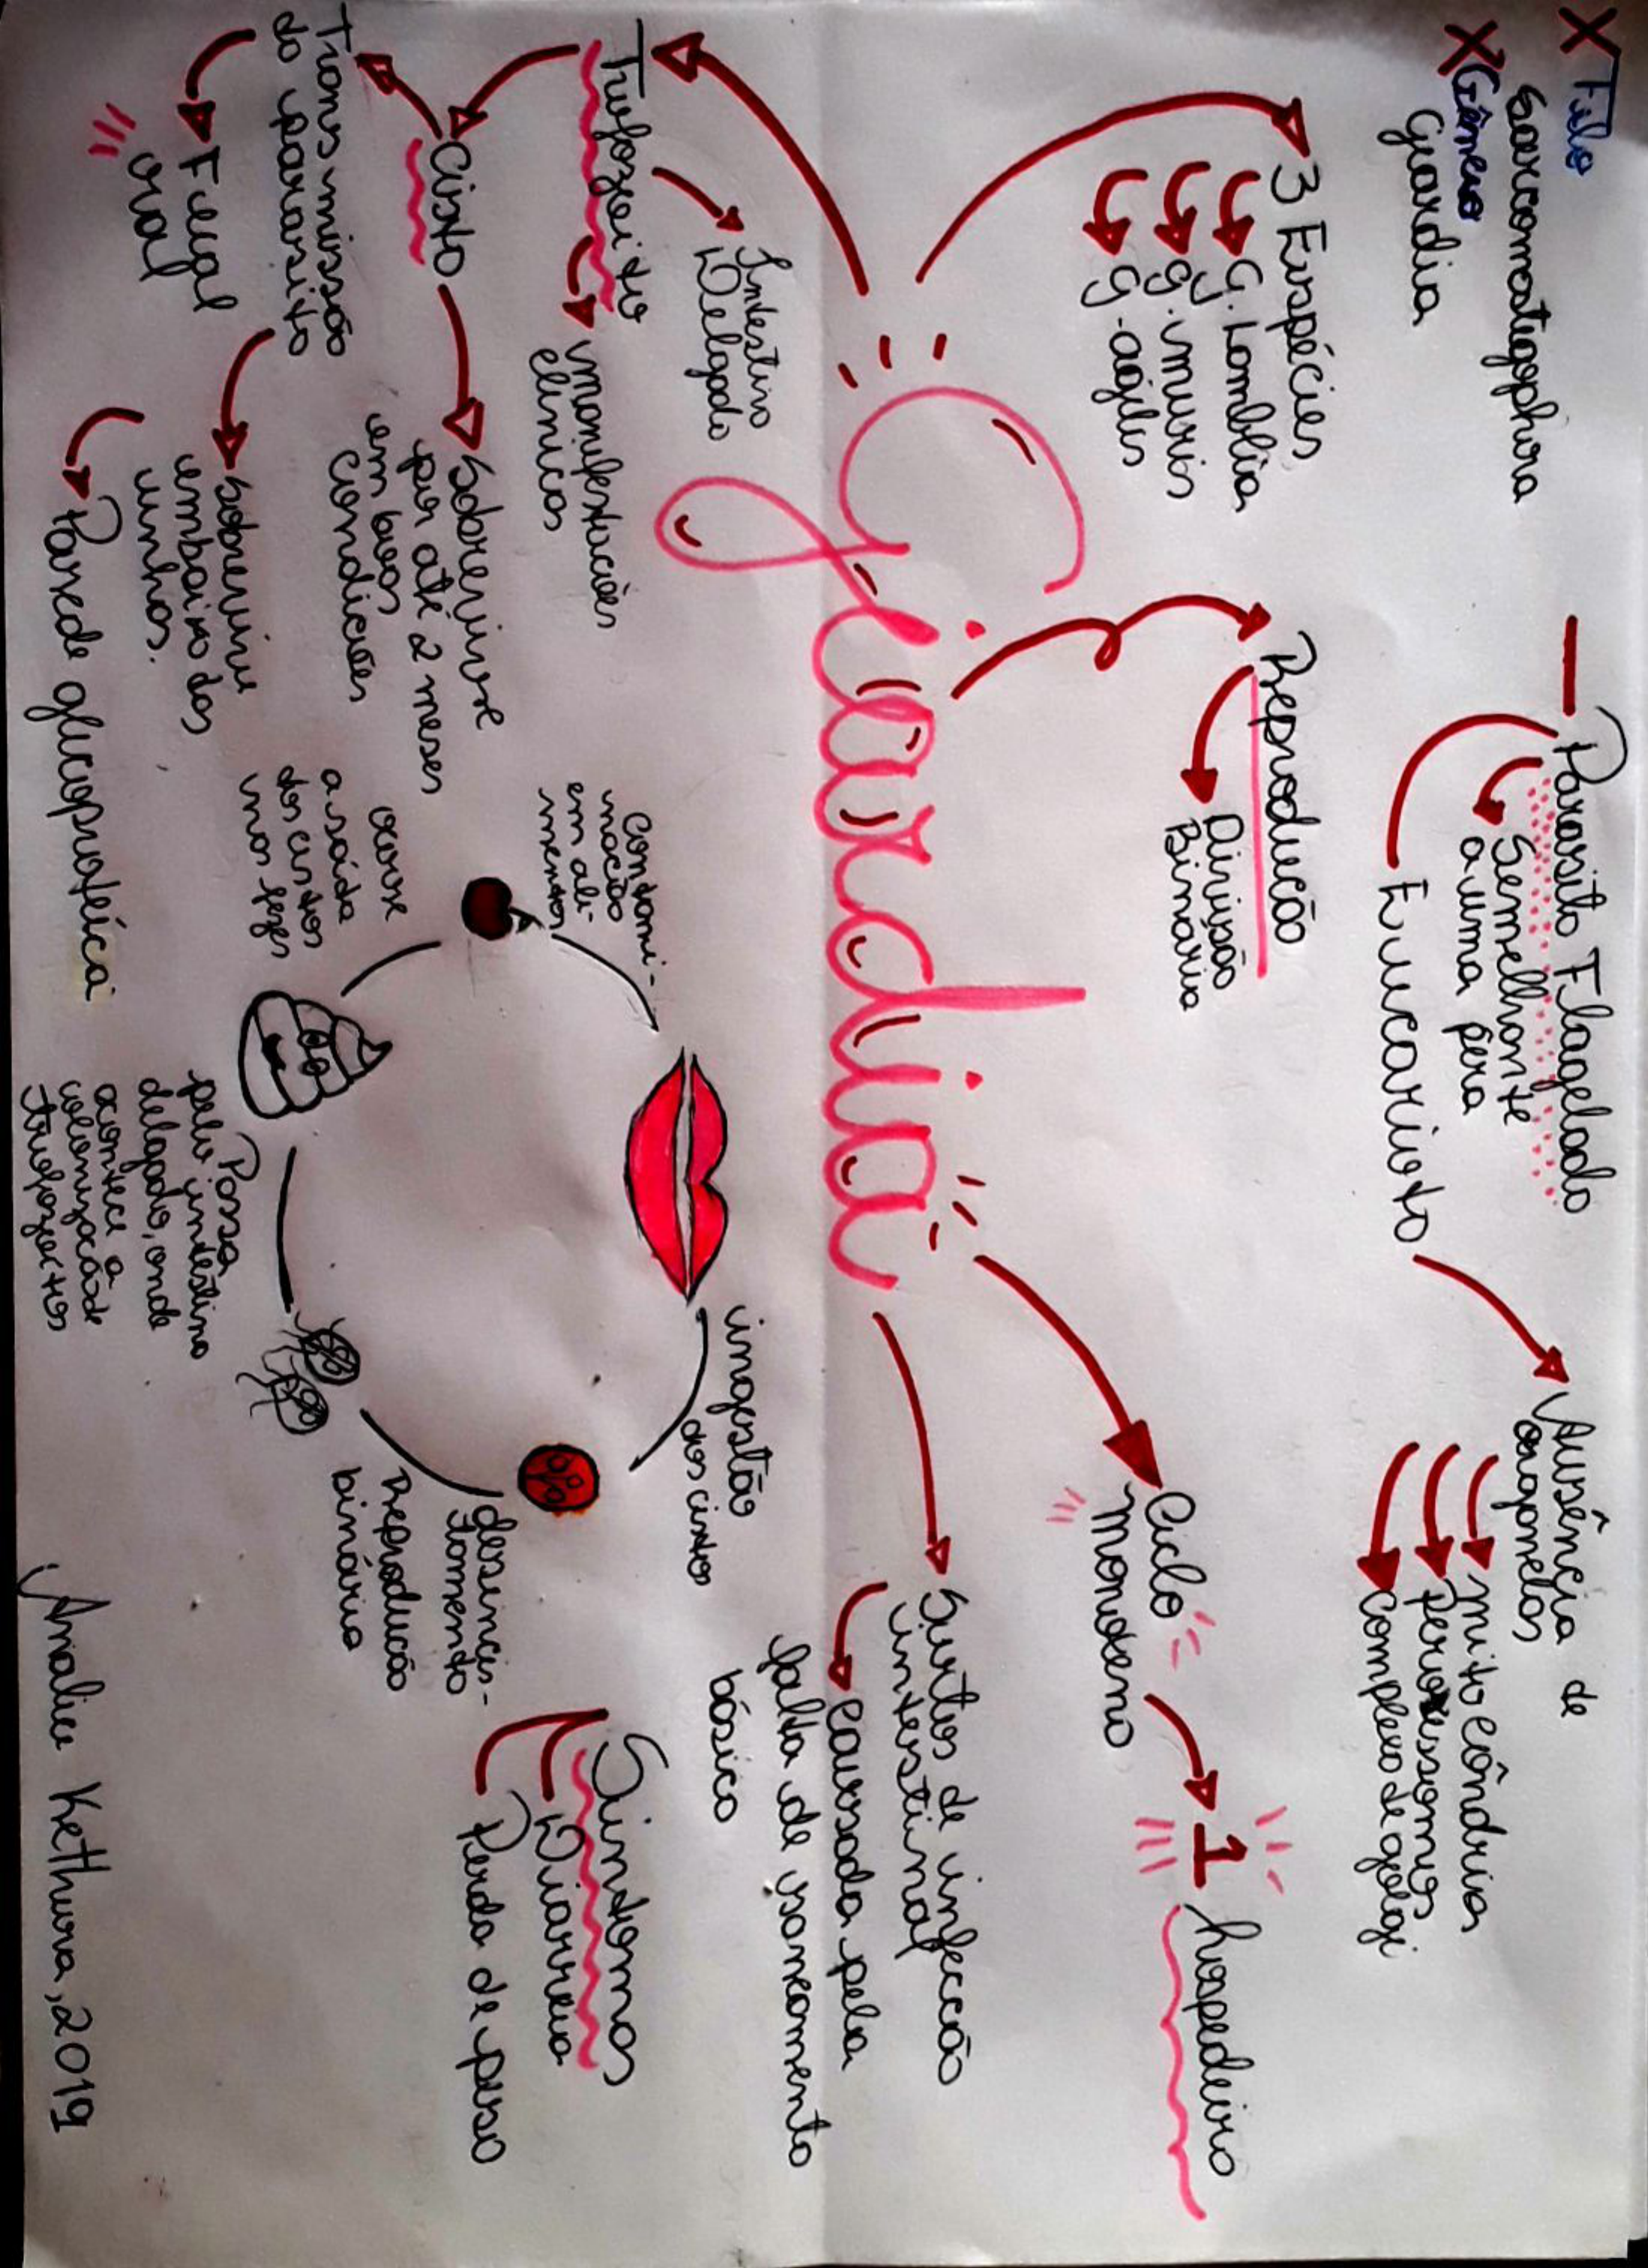 X Filo
Sarcomastigophora
X Gênero
Giardia
Parasito Flagelado
Semelhante
a uma pera
Eucarioto
Ausência de
organelas
mitocôndrias
peroxissomos
Complexo de golgi
3 Espécies
G. Lamblia
G. muris
G. agilis
Reprodução
Divisão
Binária
Ciclo
monoxeno
1 hospedeiro
Giardia
Surtos de infecção
intestinal
Causada pela
falta de saneamento
básico
Trofozoíto
Intestino
Delgado
manifestações
clínicas
Cisto
Sobrevive
por até 2 meses
em boas
Condições
Transmissão
do parasito
Fecal
oral
Sobrevive
embaixo das
unhas.
Parede glicoprotéica
Contami-
nação
em ali-
mentos
ingestão
dos cistos
desincis-
tamento
Reprodução
binária
Passa
pelo intestino
delgado, onde
acontece a
colonização de
trofozoítos
ocorre
a saída
dos cistos
nas fezes
Sintomas
Diarreia
Perda de peso
Analu Kethura, 2019